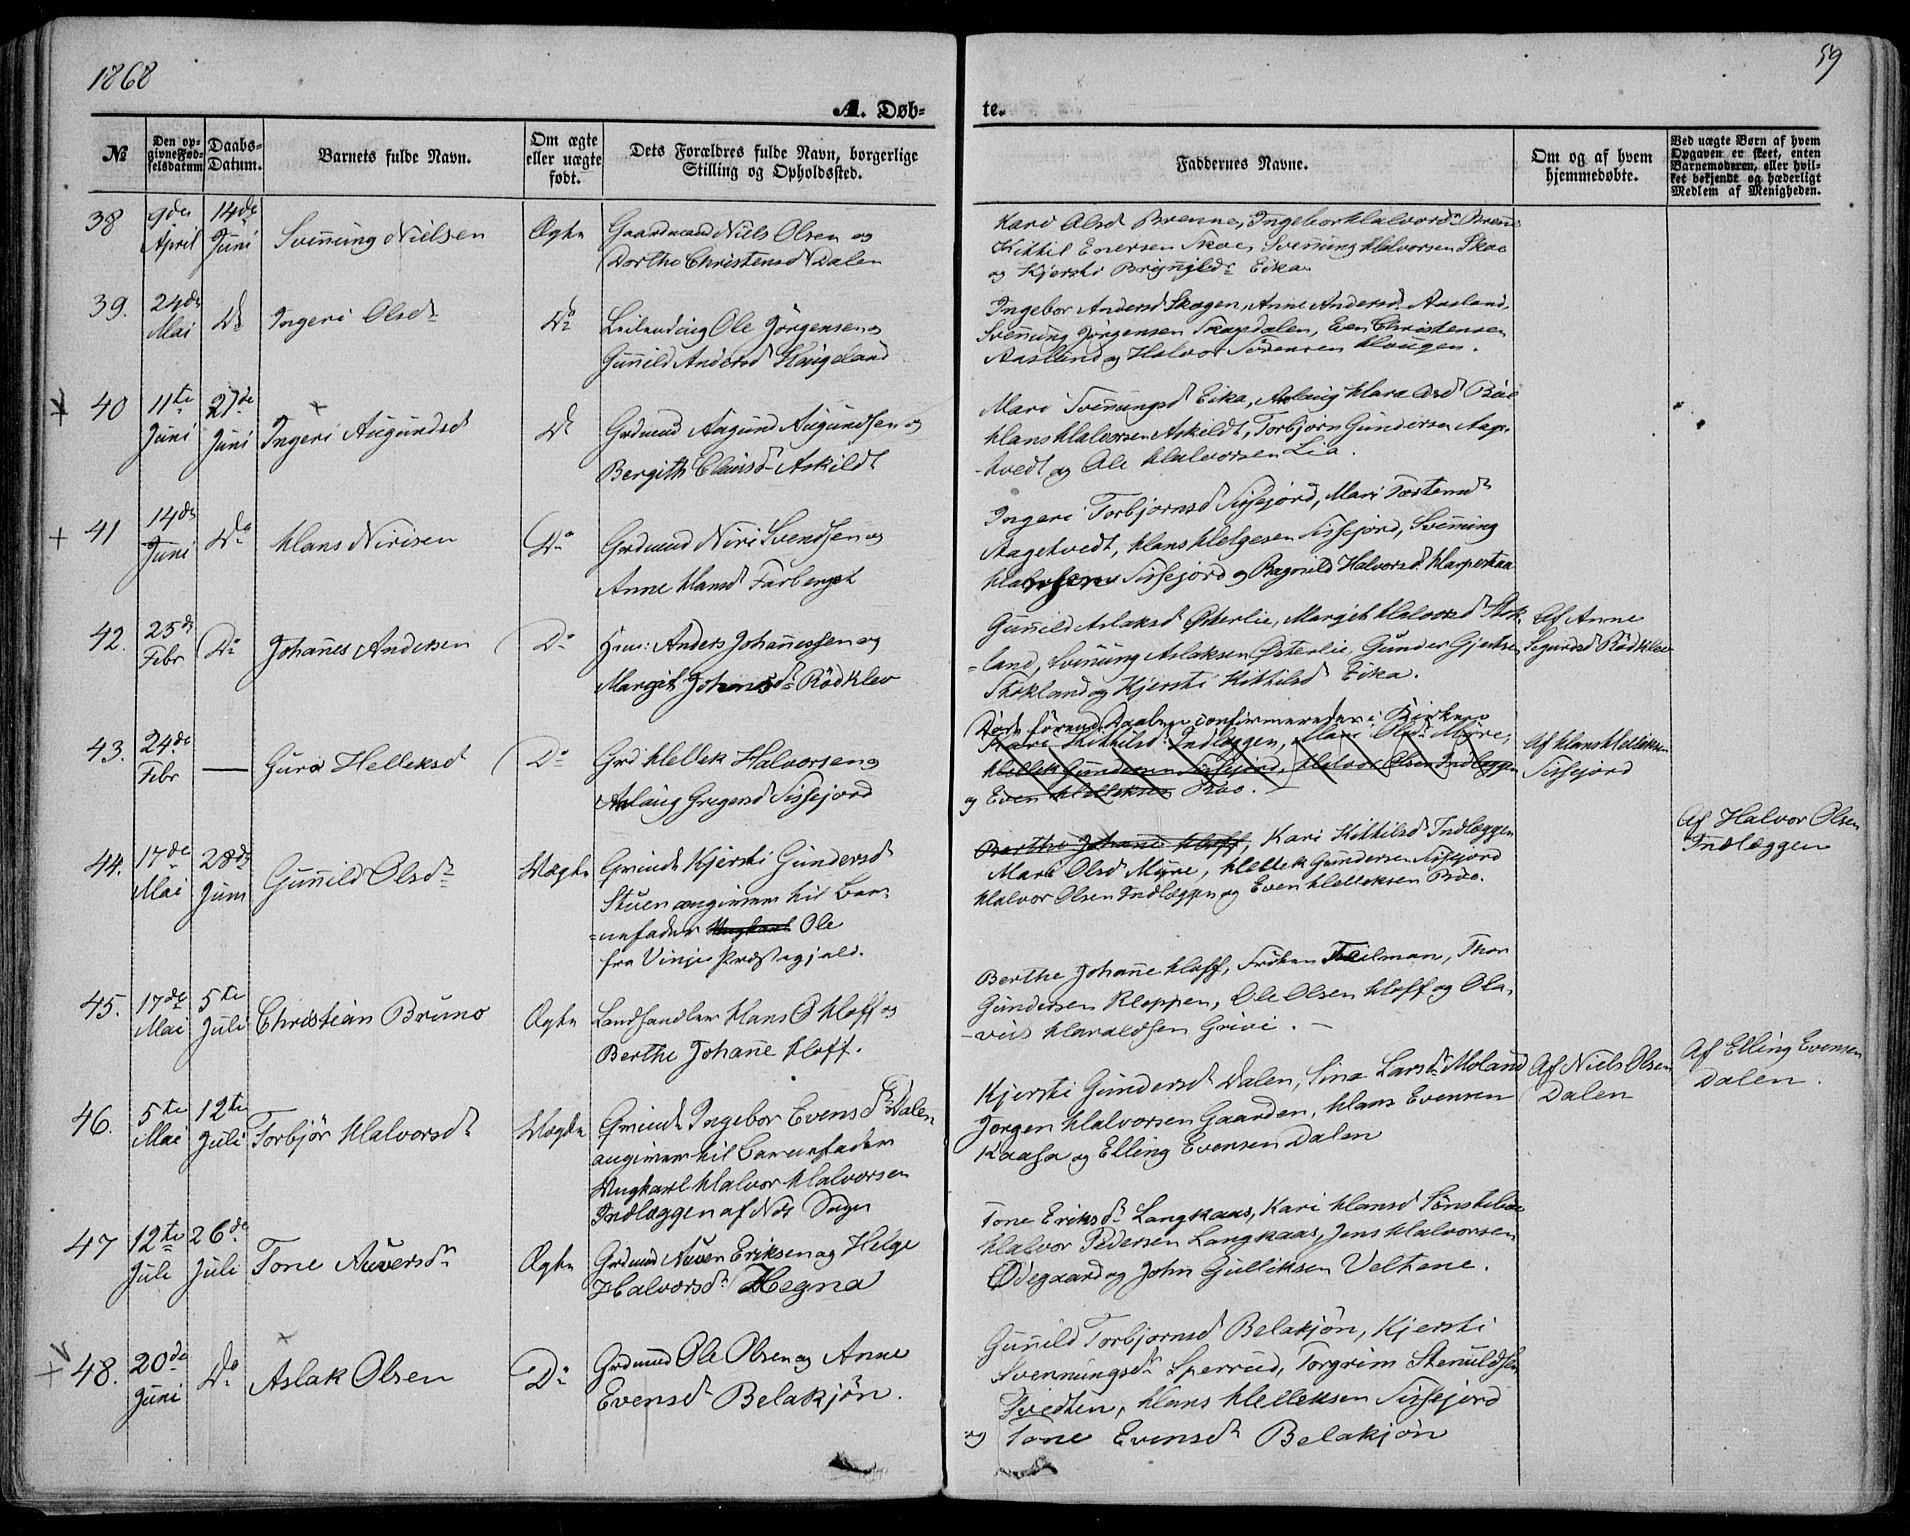 1868
59
A. Døb-
te.
№
Den op-
givne Fød-
selsdatum
Daabs-
Datum.
Barnets fulde Navn.
Om ægte
eller uægte
født.
Dets Forældres fulde Navn, borgerlige
Stilling og Opholdssted.
Faddernes Navne.
Om og af hvem
hjemmedøbte.
Ved uægte Børn af hvem
Opgaven er skeet, enten
Barnemoderen, eller hvil-
ket bekjendt og hæderligt
Medlem af Menigheden.
38
9de
April
14de
Juni
Svennung Nielsen
Ægte
Gaardmand Niels Olsen og
Dorthe Christensd Dalen
Kari Olsd Brenne, Ingebor Halvorsd Brenne
Kittil Enersen Skoe, Svennung Halvorsen Skoe
og Kjersti Brynjldr Eika
39.
24de
Mai
Do
Ingeri Olsdr
Do
Leilending Ole Jørgensen og
Gunild Andersd Haugeland
Ingebor Andersd Skogen, Anne Andersd Aasland,
Svennung Jørgensen Skogdalen, Even Christensen
Aasland og Halvor Sørensen Haugen.
40
11te
Juni
27de
Juni
Ingeri Augundsd
Do
Grdmnd Augund Augundsen og
Bergith Clausd Askildt
Mari Svenungsd Eika, Aslaug Haraldsd Bøe
Hans Halvorsen Askildt, Torbjørn Gundersen Aap-
-tvedt og Ole Halvorsen Lia.
41
14de
Juni
Do
Hans Nirisen
Do
Grdmnd Niri Svendsen og
Anne Hansd Farberget
Ingeri Torbjørnsd Sissejord, Mari Tostensd
Aagetvedt, Hans Helgesen Sissejord, Svenning
Halvorsen Sissejord og Ragnild Halvorsd
42.
25de
Febr
Do
Johanes Andersen
Do
Hmd: Anders Johanessen og
Margit Johansdr Rødklev
Gunild Aslaksd Østerlie, Margit Halvorsd Stok-
=land, Svenung Aslaksen Østerlie, Gunder Gjertsen
Stokland og Kjersti Kittilsd Eika.
Af Anne
Sigurdsd Rødklev
43.
24de
Febr
—
Guro Helleksd
Do
Grd Hellek Halvorsen og
Aslaug Gregersd Sissejord
Død førend Daaben confirmeredes i Kirken
Kari Kittilsd Indlæggen, Mari Olsd Myre,
Hellek Gundersen Sissejord, Halvor Olsen Indlæggen
og Even Helleksen Bøe.
Af Hans Helleksen
Sissejord
44.
17de
Mai
28de
Juni
Gunild Olsdr
Uægte
Qvinde Kjersti Gundersd
Stuen angiven til Bar-
=nefader Ungkarl Ole
fra Vinje Præstegjeld.
Berthe Johane Hoff, Kari Kittilsd Indlæggen
Mari Olsd Myre, Hellek Gundersen Sissejord
Halvor Olsen Indlæggen og Even Helleksen Bøe.
Af Halvor Olsen
Indlæggen
45.
17de
Mai
5te
Juli
Christian Bruno
Ægte
Landhandler Hans O Hoff og
Berthe Johane Hoff.
Berthe Johane Hoff, Frøken Teilman, Thor
Gundersen Kleppen, Ole Olsen Hoff og Ola-
-vus Haraldsen Grivi. —
46.
5te
Mai
12te
Juli
Torbjør Halvorsd
Uægte
Qvinde Ingebor Evensdr Dalen
angiven til Barnefader
Ungkarl Halvor Halvorsen
Indlæggen af Nes Sogn
Kjersti Gundersd Dalen, Sina Larsd Moland
Jørgen Halvorsen Gaarden, Hans Evensen
Kaasa og Elling Evensen Dalen
Af Niels Olsen
Dalen
Af Elling Evensen
Dalen.
47
12te
Juli
26de
Juli
Tone Auversdr
Ægte
Grdmnd Auver Eriksen og Helge
Halvorsdr Hegna
Tone Eriksdr Langkaas, Kari Hansd Sønstelien
Halvor Pedersen Langkaas, Jens Halvorsen
Ødegaard og John Gulliksen Veltene.
48.
20de
Juni
Do
Aslak Olsen
Do
Grdmnd Ole Olsen og Anne
Evensdr Belakjøn.
Gunild Torbjørnsd Belakjøn, Kjersti
Svennungsdr Sperrud, Torgrim Stenuldsen
Tvedten, Hans Helleksen Sissejord
og Tone Evensdr Belakjøn